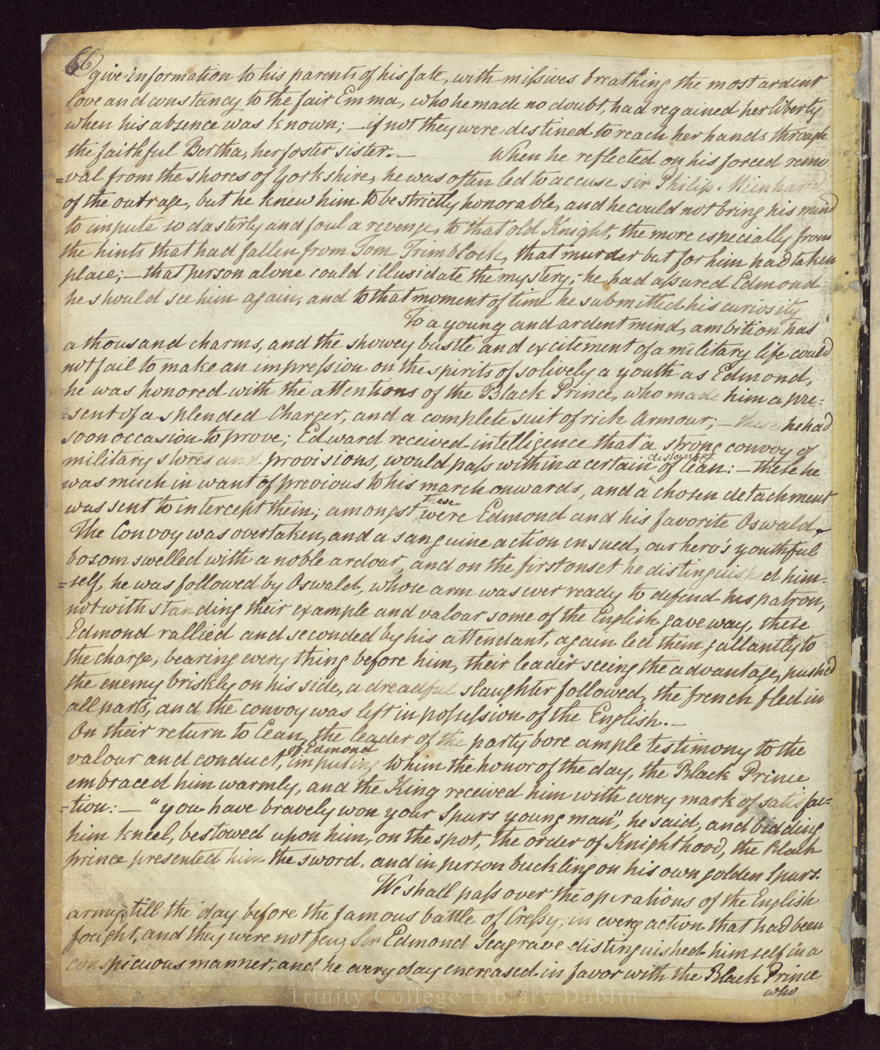 66
give information to his parents of his fate, with missives breathing the most ardent
love and constancy to the fair Emma, who he made no doubt, had regained her liberty
when his absence was known; — if not they were destined to reach her hands through
the faithful Bertha, her foster sister. — When he reflected on his forced remo
=val from the shores of Yorkshire, he was often led to accuse sir Philip Mienhard
of the outrage, but he knew him to be strictly honorable, and he could not bring his mind
to impute so dasterly and foul a revenge, to that old Knight, the more especially from
the hints that had fallen from Tom Trimblock, that murder but for him had taken
place; — that person alone could illusidate the mystery; he had assured Edmond
he should see him again, and to that moment of time he submitted his curiosity
To a young and ardent mind, ambition has
a thousand charms, and the showey bustle and excitement of a military life could
not fail to make an impression on the spirits of so lively a youth as Edmond,
he was honored with the attentions of the Black Prince, who made him a pre=
=sent of a splended Charger, and a complete suit of rich Armour; — these he had
soon occasion to prove; Edward received intelligence that a strong convoy of
military stores and provisions, would pass within a certain distance of Cean: — these he
was much in want of previous to his march onwards, and a chosen detachment
was sent to intercept them; amongst these were Edmond and his favorite Oswald —
The Convoy was overtaken, and a sanguine action insued, our hero's youthful
bosom swelled with a noble ardour, and on the first onset he distinguished him=
=self, he was followed by Oswald, whose arm was ever ready to defend his patron,
notwithstanding their example and valour some of the English gave way, these
Edmond rallied and seconded by his attendant, again led them gallantly to
the charge, bearing every thing before him, their leader seeing the advantage, pushed
the enemy briskly on his side, a dreadful slaughter followed, the french fled in
all parts, and the convoy was left in possession of the English. —
On their return to Cean, the leader of the party bore ample testimony to the
valour and conduct, of Edmond imputing to him the honor of the day, the Black Prince
embraced him warmly, and the King received him with every mark of satisfac=
=tion: — "you have bravely won your Spurs young man", he said, and bidding
him kneel, bestowed upon him, on the spot, the order of Knighthood, the Black
prince presented him the sword, and in person buckling on his own golden Spurs.
We shall pass over the operations of the English
army, till the day before the famous battle of Cressy, in every action that had been
fought, and they were not few, Sir Edmond Seagrave distinguished himself in a
conspicuous manner, and he every day encreased in favor with the Black Prince
who
Trinity College Library Dublin